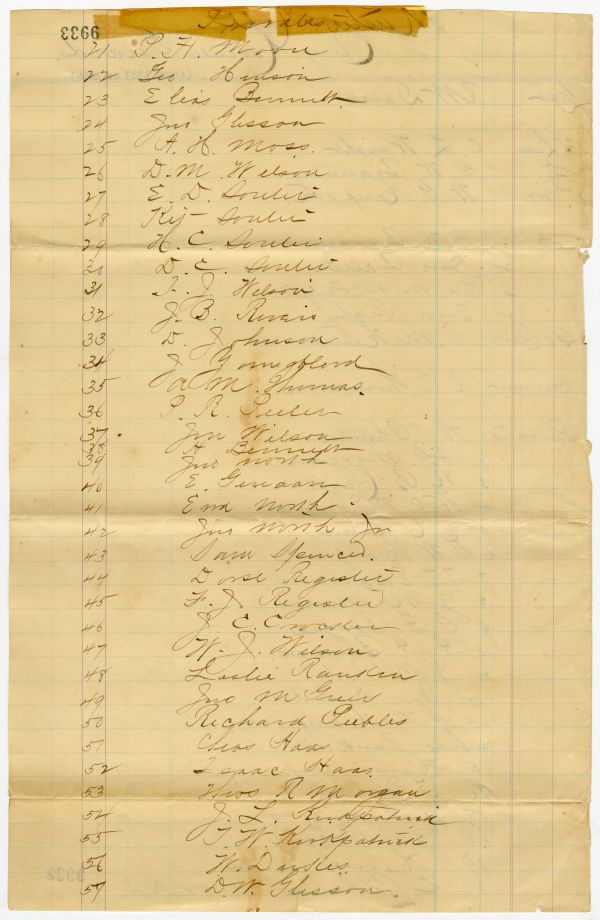 Privates
9933
21 P. H. Moon
22 Geo Hinson
23 Elias Bennett
24 Jno Glisson
25 A. H. Moss.
26 D. M. Wilson
27 E. D. Souter
28 Kit Souter
29 H. C. Souter
30 D. E. Souter
31 Wilson
32 J. B. Revais
33 D. Johnson
34 J
35 A M. Thomas.
36 P. R. Peeler
37 Jno Wilson
38 A Bennett
39 Jno North
40 E.
41 North
42 Jno North Jr
43 Sam Spencer.
44 Register
45 F. J. Register
46 J. E. Crocker
47 W. J. Wilson
48 Leslie Rankin
49 Jno M Greer
50 Richard Peebles
51 Chas Haas
52 Isaac Haas.
53 Thos R Morgan
54 J. L. Kirkpatrick
55 T W. Kirkpatrick
56 W. Dukes.
57 D. W. Glisson.